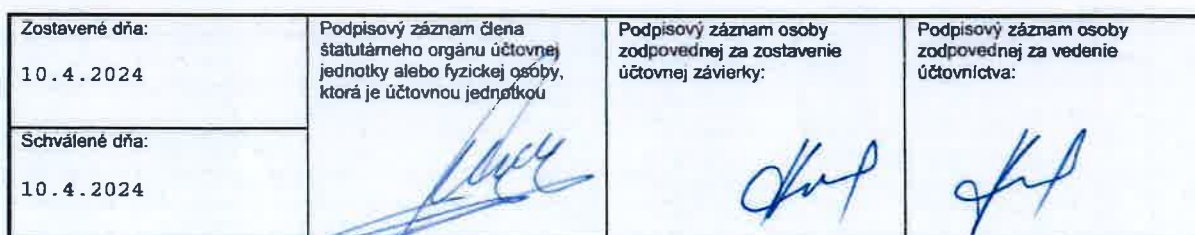 Zostavené dňa:
10.4.2024
Schválené dňa:
10.4.2024
Podpisový záznam člena
štatutárneho orgánu účtovnej
jednotky alebo fyzickej osoby,
ktorá je účtovnou jednotkou
Podpisový záznam osoby
zodpovednej za zostavenie
účtovnej závierky:
Podpisový záznam osoby
zodpovednej za vedenie
účtovníctva: